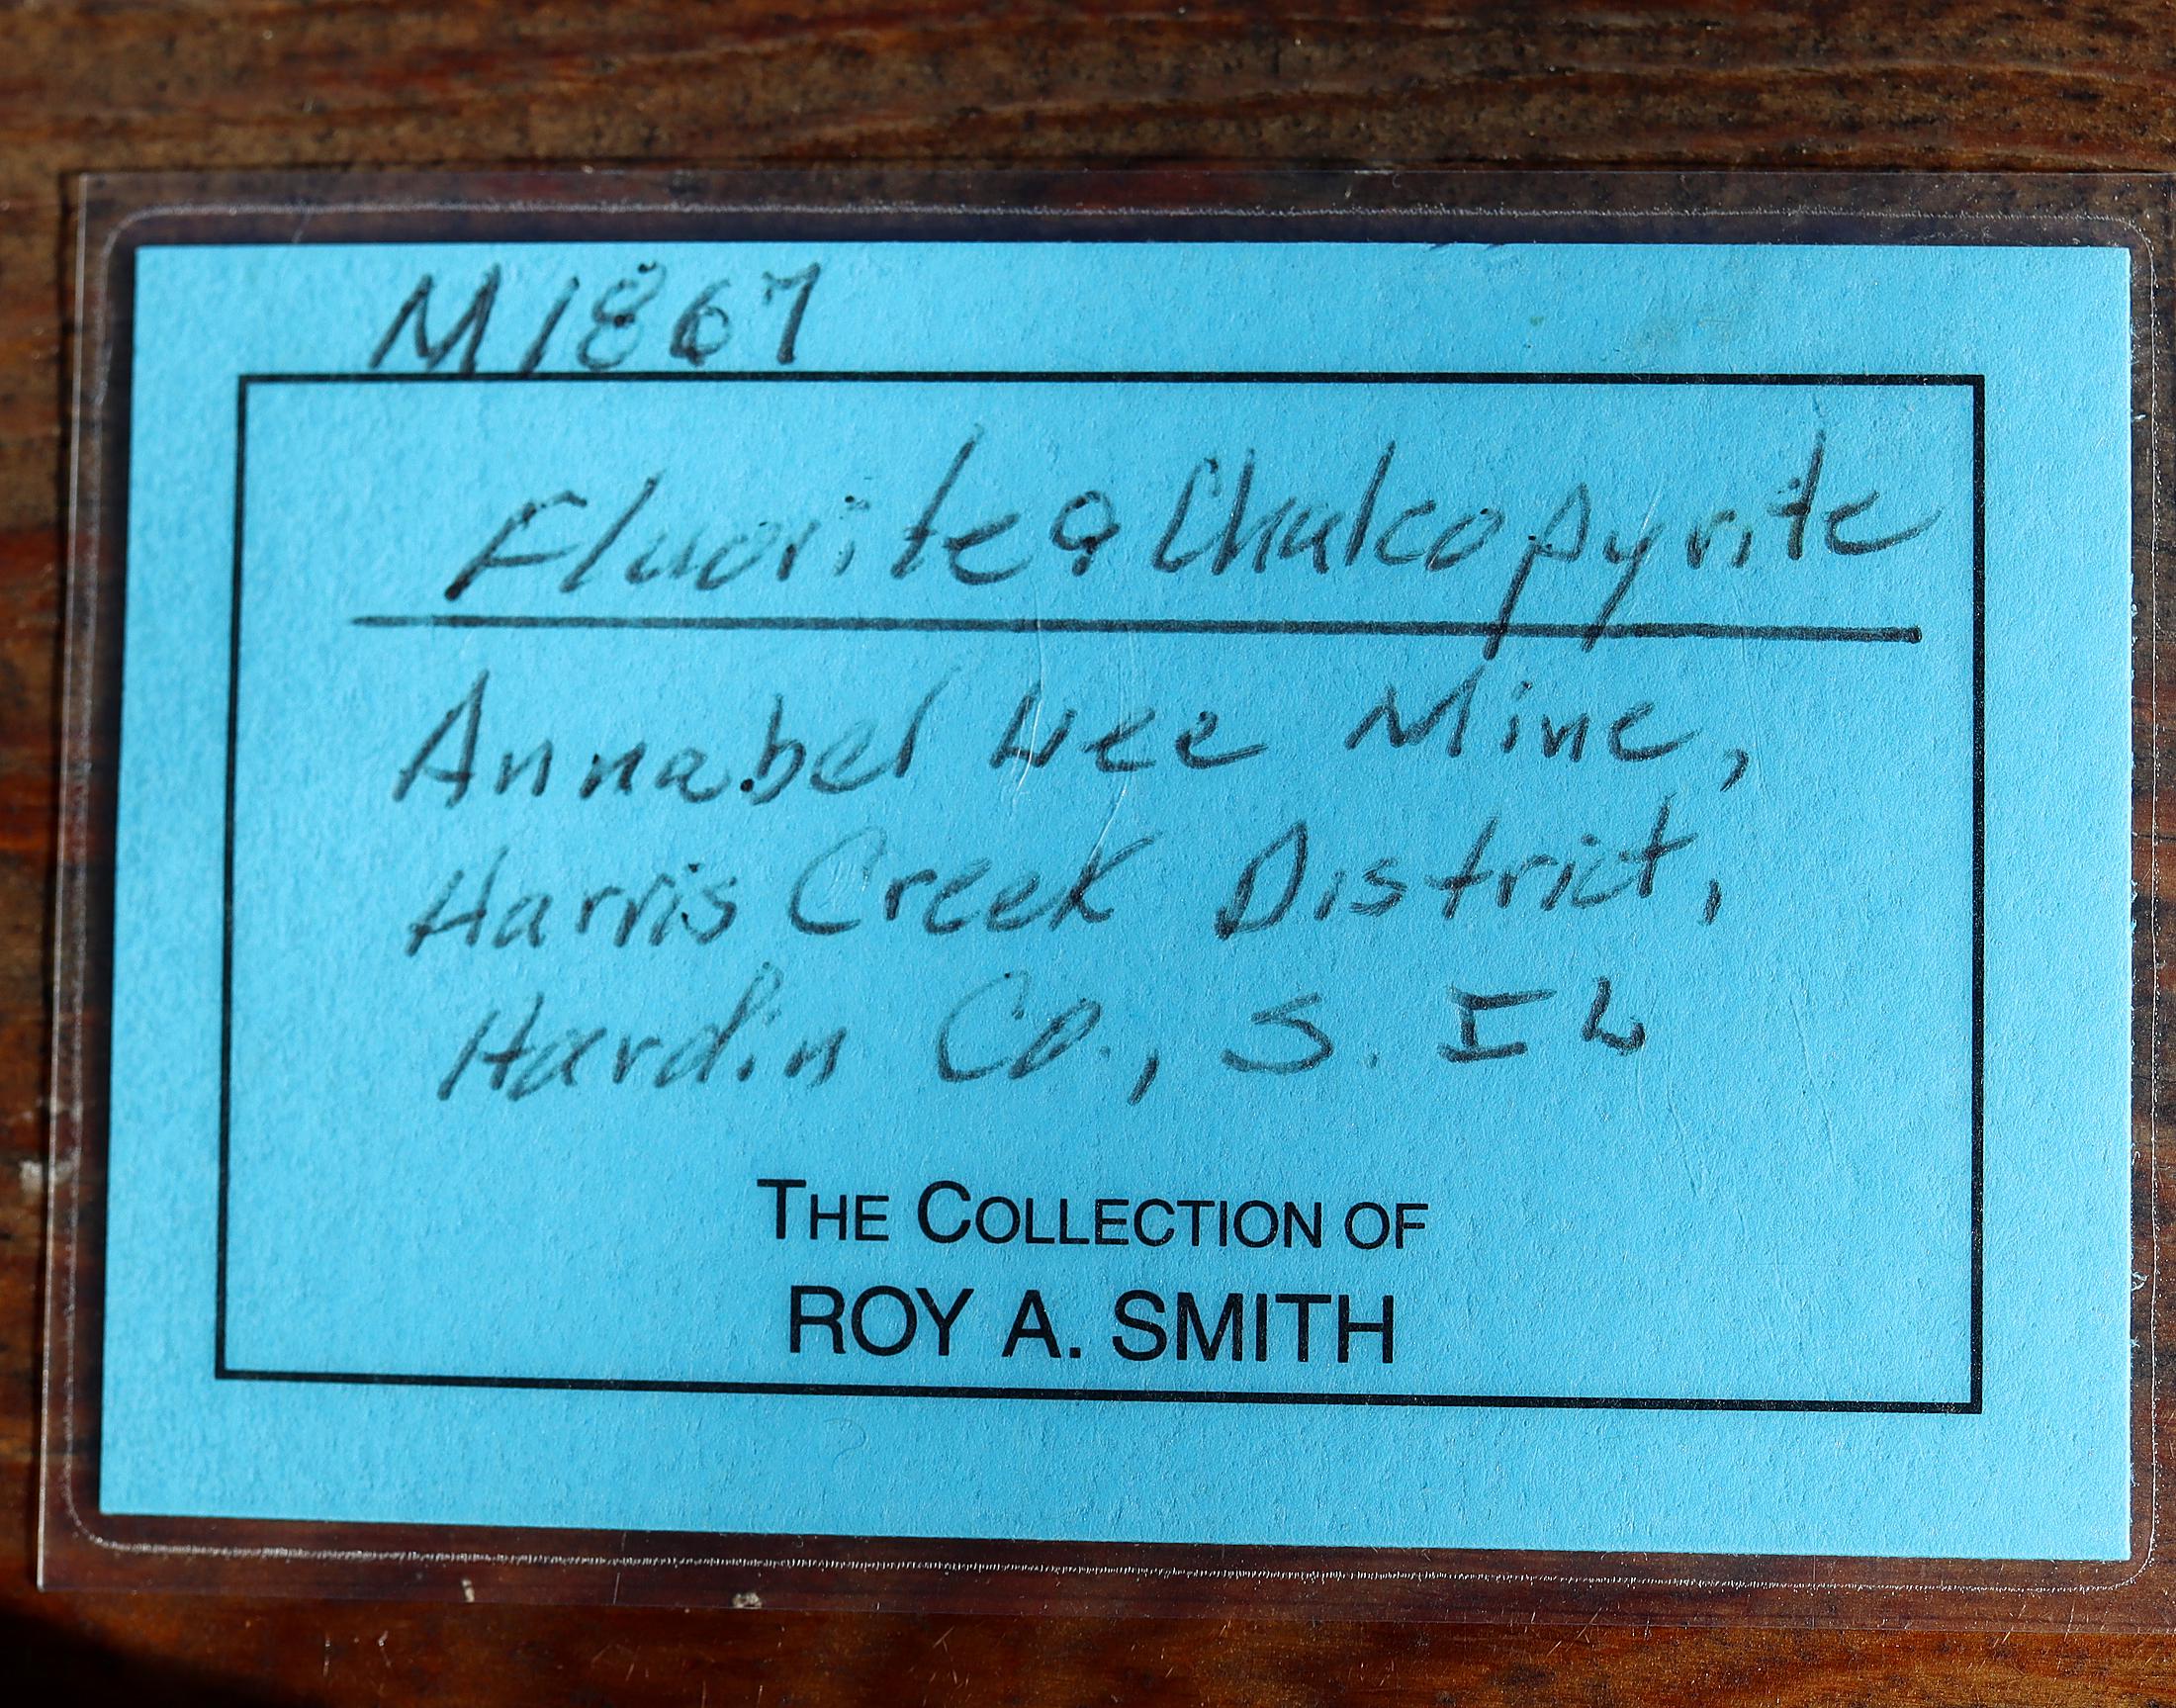 M1867
Fluorite & Chalcopyrite
Annabel Lee Mine,
Harris Creek District,
Hardin Co., S. IL
THE COLLECTION OF
ROY A. SMITH